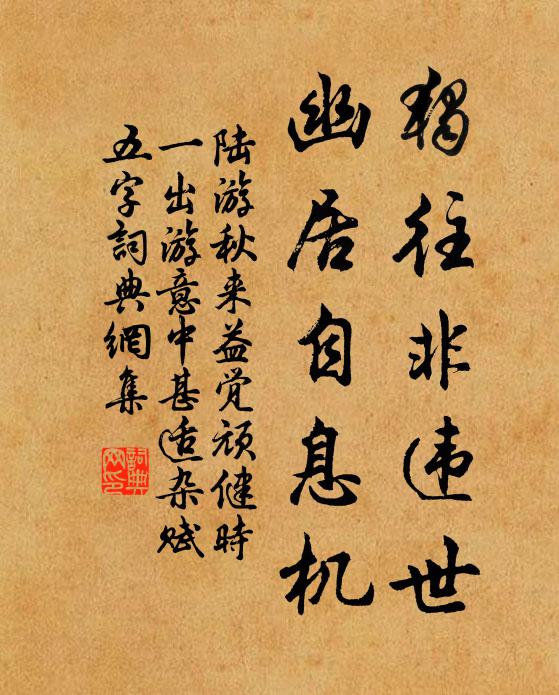 独往非违世
幽居自息机
陆游秋来益觉顽健時
一出游意中甚适杂赋
五字詞典網集
詞典網印